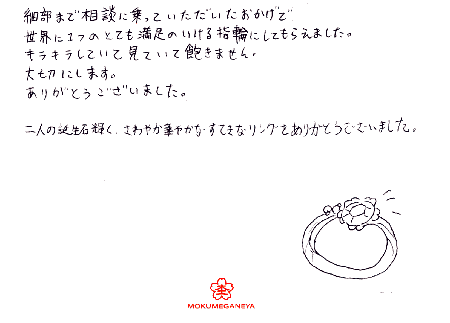 細部まで相談に乗っていただいたおかげで
世界に1つのとても満足のいける指輪にしてもらえました。
キラキラしていて見ていて飽きません。
大切にします。
ありがとうございました。
二人の誕生石輝く、さわやか華やかなすてきなリングをありがとうございました。
MOKUMEGANEYA